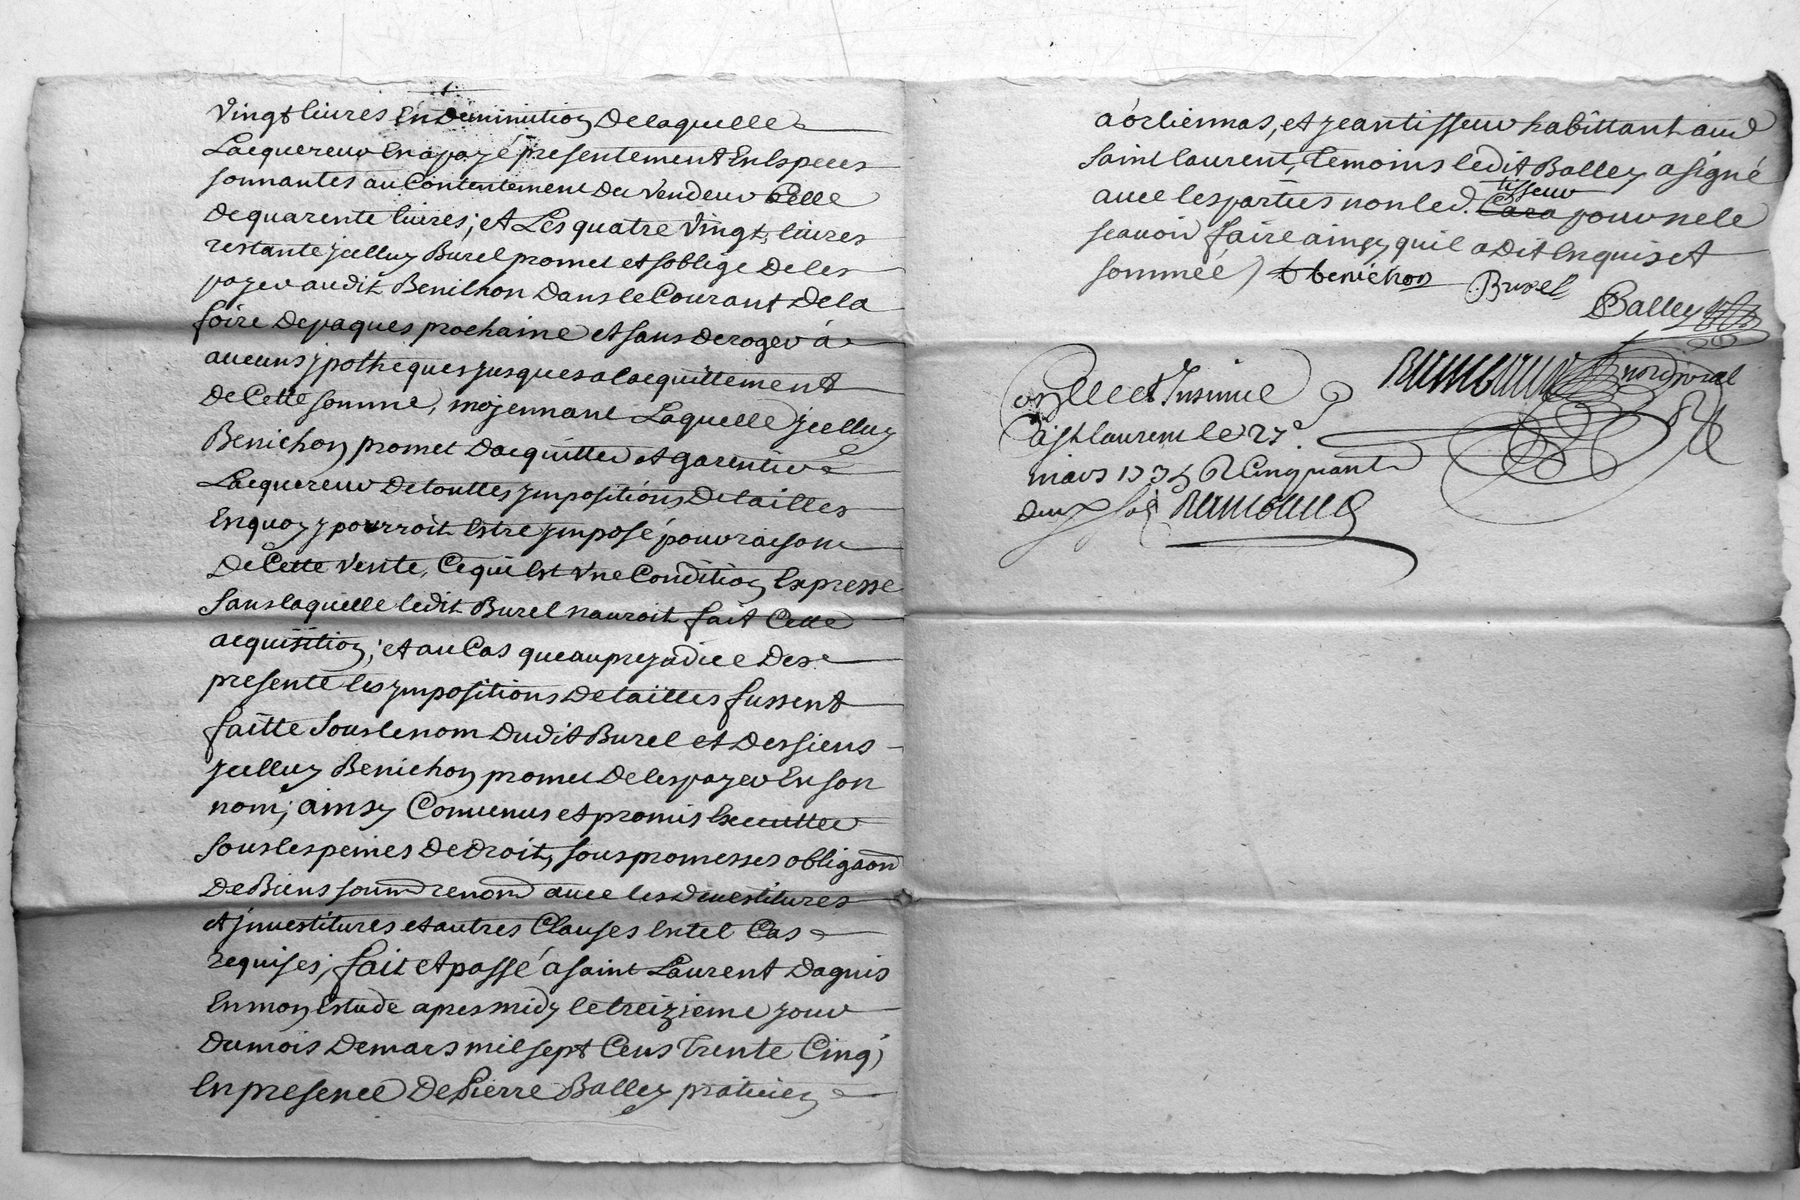 vingt livres En Diminution Delaquelle
Lacquereur En a payé presentement En Especes
sonnantes au Contentement Du vendeur Celle
De quarente livres; et Les quatre vingt livres
restante jcelluy Burel promet et soblige De les
payer audit Benichon Dans le Courant De la
foire De paques prochaine et sans Deroger á
aucuns ypotheques jusques a lacquittement
De Cette somme, moyennant Laquelle jcelluy
Benichon promet Dacquitter et garentir
Lacquereur De touttes jmpositions De tailles
En quoy y pourroit Estre jmposé pour raison
De Cette vente, Ce qui Est vne Condition Expresse
sans laquelle ledit Burel nauroit fait Cette
acquisition; et au Cas que au prejudice Des
presente les jmpositions De tailles fussent
faitte sous le nom Dudit Burel et Des siens
jcelluy Benichon promet De les payer En son
nom; ainsy Convenus et promis Executter
sous les peines De Droit, sous promesses obligaon
De Biens soum renon avec les Devestitures
et jnvestitures et autres Clauses En tel Cas
requises; fait et passé a saint Laurent Dagnis
En mon Estude apres midy le treizieme jour
Du mois De mars mil sept Cens trente Cinq,
En presence De Pierre Balley praticien
a orliennas, et jean tisseur habittant aud
saint laurent, temoins ledit Balley a signé
avec les parties non led. Cara tisseur pour ne le
scavoir faire ainsy quil a Dit Enquis et
sommée) benichon Burel
Balley
Conllé et Insinué
a st laurent le 27e
mars 1735 R Cinquante
deux sols